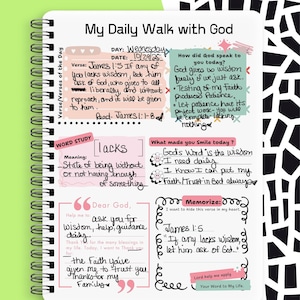 My Daily Walk with God
DAY: Wednesday
DATE:
Verse/Verses of the Day
Verse: James 1:5 If any of
you lacks wisdom, let him
ask of God, who gives to all
liberally, and without
reproach, and it will be given
to him.
Read: James 1:1-8
How did God speak to
you today?
God gives us wisdom
if we just ask.
Testing of my faith
produces patience.
Let patience have its
perfect work - you
complete lacking
nothing
WORD STUDY
lacks
Meaning:
State of being without
or not having enough
of something.
What made you Smile today?
God's Word is the wisdom
I need daily
I know I can put my
Faith/Trust in God always
Dear God,
Help me to
ask you for
wisdom, help, guidance
daily.
Thank You for the many blessings in
my life. Today, I want to Thank You
the Faith you've
given me to trust you
Thanks for my
Family
Memorize:
I want to hide this verse in my heart
James 1:5
If any lacks wisdom,
let him ask of God.
Lord help me apply
Your Word to My Life